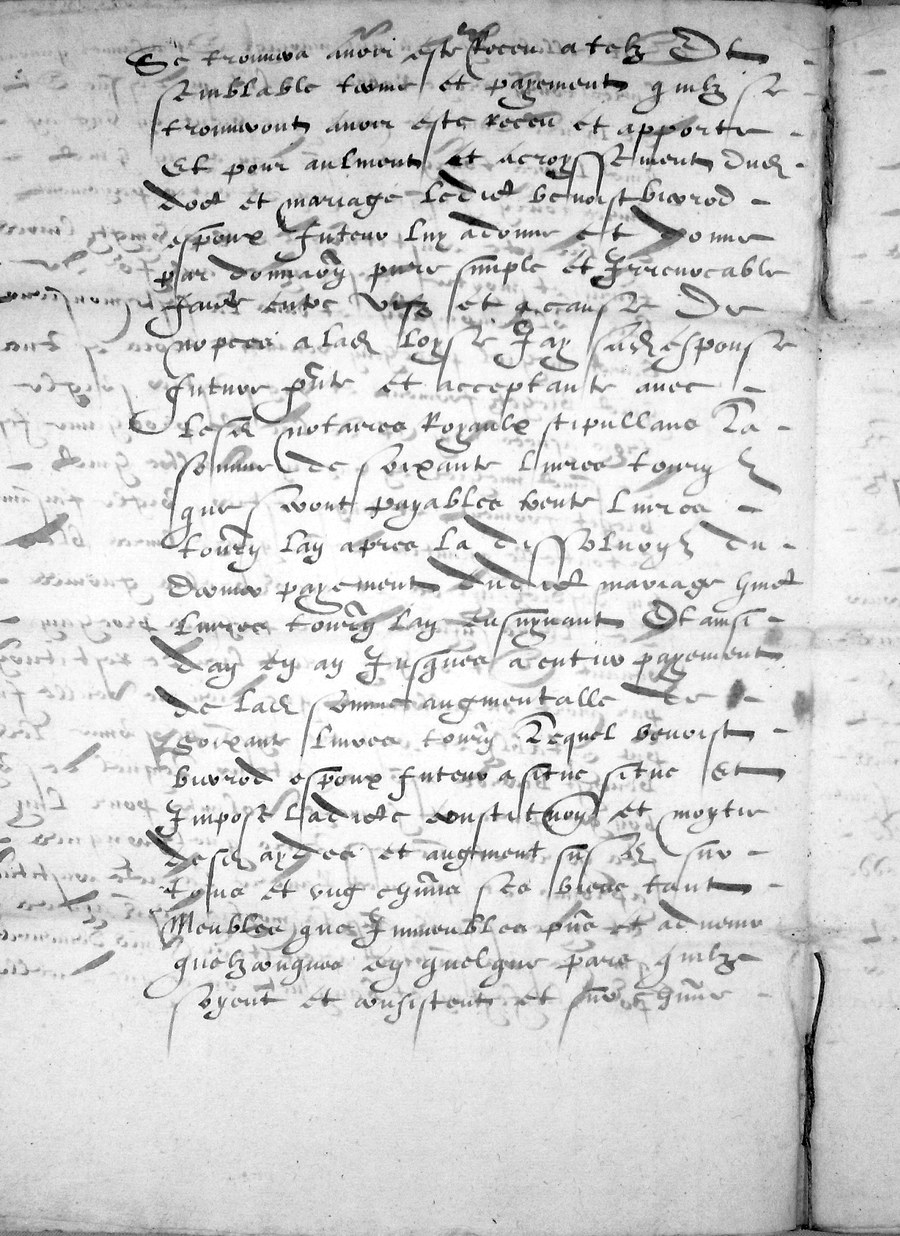 Se trouvera avoir este Receu a telz Et
semblable terme et payement quilz se
trouveront avoir este receu et apporte
Et pour aulment et acroyssement dud
dot et mariage ledict benoist
espoux futeur luy a donne et donne
par donnaon pure simple et Irrevocable
faicte entre vifz et a cause de
nopces a lad loyse Jay sad espouse
future pnte et acceptante avec
lesd notaires Royaulx stipullans La
somme de soixante livres tourn
que seront payables vente livres
tourn lan apres la dissolluon du
dernier payement dudict mariage
livres tourn lan ensuyvant Et ainsi
dan en an Jusques a entier payement
de lad somme augmentalle de
soixante livres tourn Lequel benoist
espoux futeur a situe situe Et
Impose ladicte constituon et moytie
desd et augment susd sur
tous et ung chūns ses biens tant
Meubles que Immeubles pns et advenir
quelzconques en quelque pars quilz
soyent et consistent et sur chūne